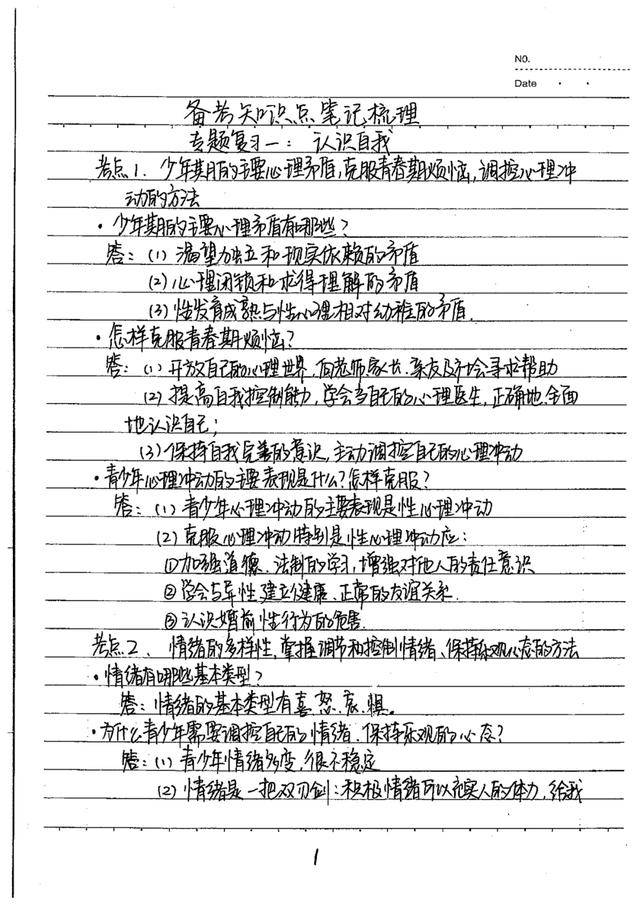 NO.
Date
备考知识点笔记梳理
专题复习一：认识自我
考点1. 少年期的主要心理矛盾,克服青春期烦恼,调控心理冲
动的方法
·少年期的主要心理矛盾有哪些?
答:(1)渴望独立和现实依赖的矛盾
(2)心理闭锁和求得理解的矛盾
(3)性发育成熟与性心理相对幼稚的矛盾.
·怎样克服青春期烦恼?
答:(1)开放自己的心理世界,向老师家长、亲友及社会寻求帮助
(2)提高自我控制能力,学会当自己的心理医生,正确地、全面
地认识自己;
(3)保持自我完善的意识,主动调控自己的心理冲动
·青少年心理冲动的主要表现是什么?怎样克服?
答:(1)青少年心理冲动的主要表现是性心理冲动
(2)克服心理冲动特别是性心理冲动应:
①加强道德、法制的学习,增强对他人的责任意识
②学会与异性建立健康、正常的友谊关系.
③认识婚前性行为的危害.
考点2. 情绪的多样性,掌握调节和控制情绪、保持乐观心态的方法
·情绪有哪些基本类型?
答:情绪的基本类型有喜、怒、哀、惧。
·为什么青少年需要调控自己的情绪、保持乐观的心态?
答:(1)青少年情绪多变,很不稳定
(2)情绪是一把双刃剑:积极情绪可以充实人的体力,给我
1